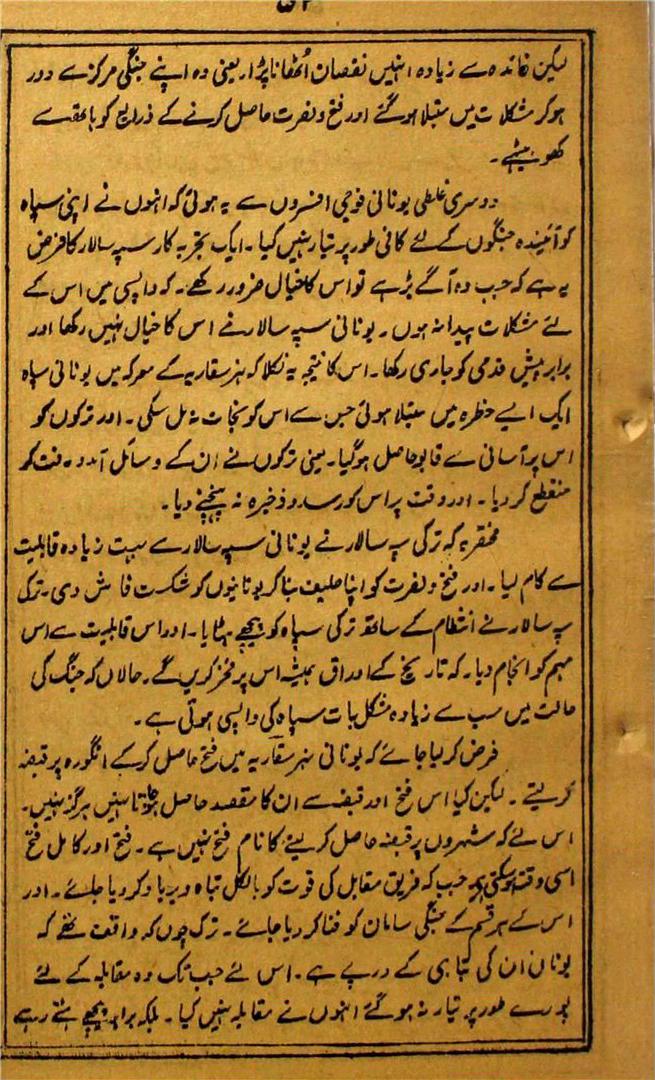 لیکن فائدہ سے زیادہ انہیں نقصان اُٹھانا پڑا۔ یعنی وہ اپنے جنگی مرکز سے دور
ہو کر مشکلات میں مبتلا ہو گئے اور فتح و نصرت حاصل کرنے کے ذرائع کو ہاتھ سے
کھو بیٹھے۔
دوسری غلطی یونانی فوجی افسروں سے یہ ہوئی کہ انہوں نے اپنی سپاہ
کو آئیندہ جنگوں کے لئے کافی طور پر تیار نہیں کیا۔ ایک تجربہ کار سپہ سالار کا فرض
یہ ہے کہ جب وہ آگے بڑہے تو اس کا خیال ضرور رکھے۔ کہ واپسی میں اس کے
لئے مشکلات پیدا نہ ہوں۔ یونانی سپہ سالار نے اس کا خیال نہیں رکھا اور
برابر پیش قدمی کو جاری رکھا۔ اس کا نتیجہ یہ نکلا کہ نہر سقاریہ کے معرکہ میں یونانی سپاہ
ایک ایسے خطرہ میں مبتلا ہوئی جس سے اس کو نجات نہ مل سکی۔ اور ترکوں کو
اس پر آسانی سے قابو حاصل ہو گیا۔ یعنی ترکوں نے ان کے وسائل آمد و رفت کو
منقطع کر دیا۔ اور وقت پر اس کو رسد و ذخیرہ نہ پہنچنے دیا۔
مختصر یہ کہ ترکی سپہ سالار نے یونانی سپہ سالار سے بہت زیادہ قابلیت
سے کام لیا۔ اور فتح و نصرت کو اپنا حلیف بنا کر یونانیوں کو شکست فاش دی۔ ترکی
سپہ سالار نے انتظام کے ساتھ ترکی سپاہ کو پیچھے ہٹایا۔ اور اس قابلیت سے اس
مہم کو انجام دیا۔ کہ تاریخ کے اوراق ہمیشہ اس پر فخر کریں گے۔ حالاں کہ جنگ کی
حالت میں سب سے زیادہ مشکل بات سپاہ کی واپسی ہوتی ہے۔
فرض کر لیا جائے کہ یونانی نہر سقاریہ میں فتح حاصل کر کے انگورہ پر قبضہ
کر لیتے۔ لیکن کیا اس فتح اور قبضہ سے ان کا مقصد حاصل ہو جاتا نہیں ہرگز نہیں۔
اس لئے کہ شہروں پر قبضہ حاصل کر لینے کا نام فتح نہیں ہے۔ فتح اور کامل فتح
اسی وقت ہو سکتی ہے جب کہ فریق مقابل کی قوت کو بالکل تباہ و برباد کر دیا جائے۔ اور
اس کے ہر قسم کے جنگی سامان کو فنا کر دیا جائے۔ ترک چوں کہ واقف تھے کہ
یونان ان کی تباہی کے درپے ہے۔ اس لئے جب تک وہ مقابلہ کے لئے
پورے طور پر تیار نہ ہو گئے انہوں نے مقابلہ نہیں کیا۔ بلکہ برابر پیچھے ہٹتے رہے